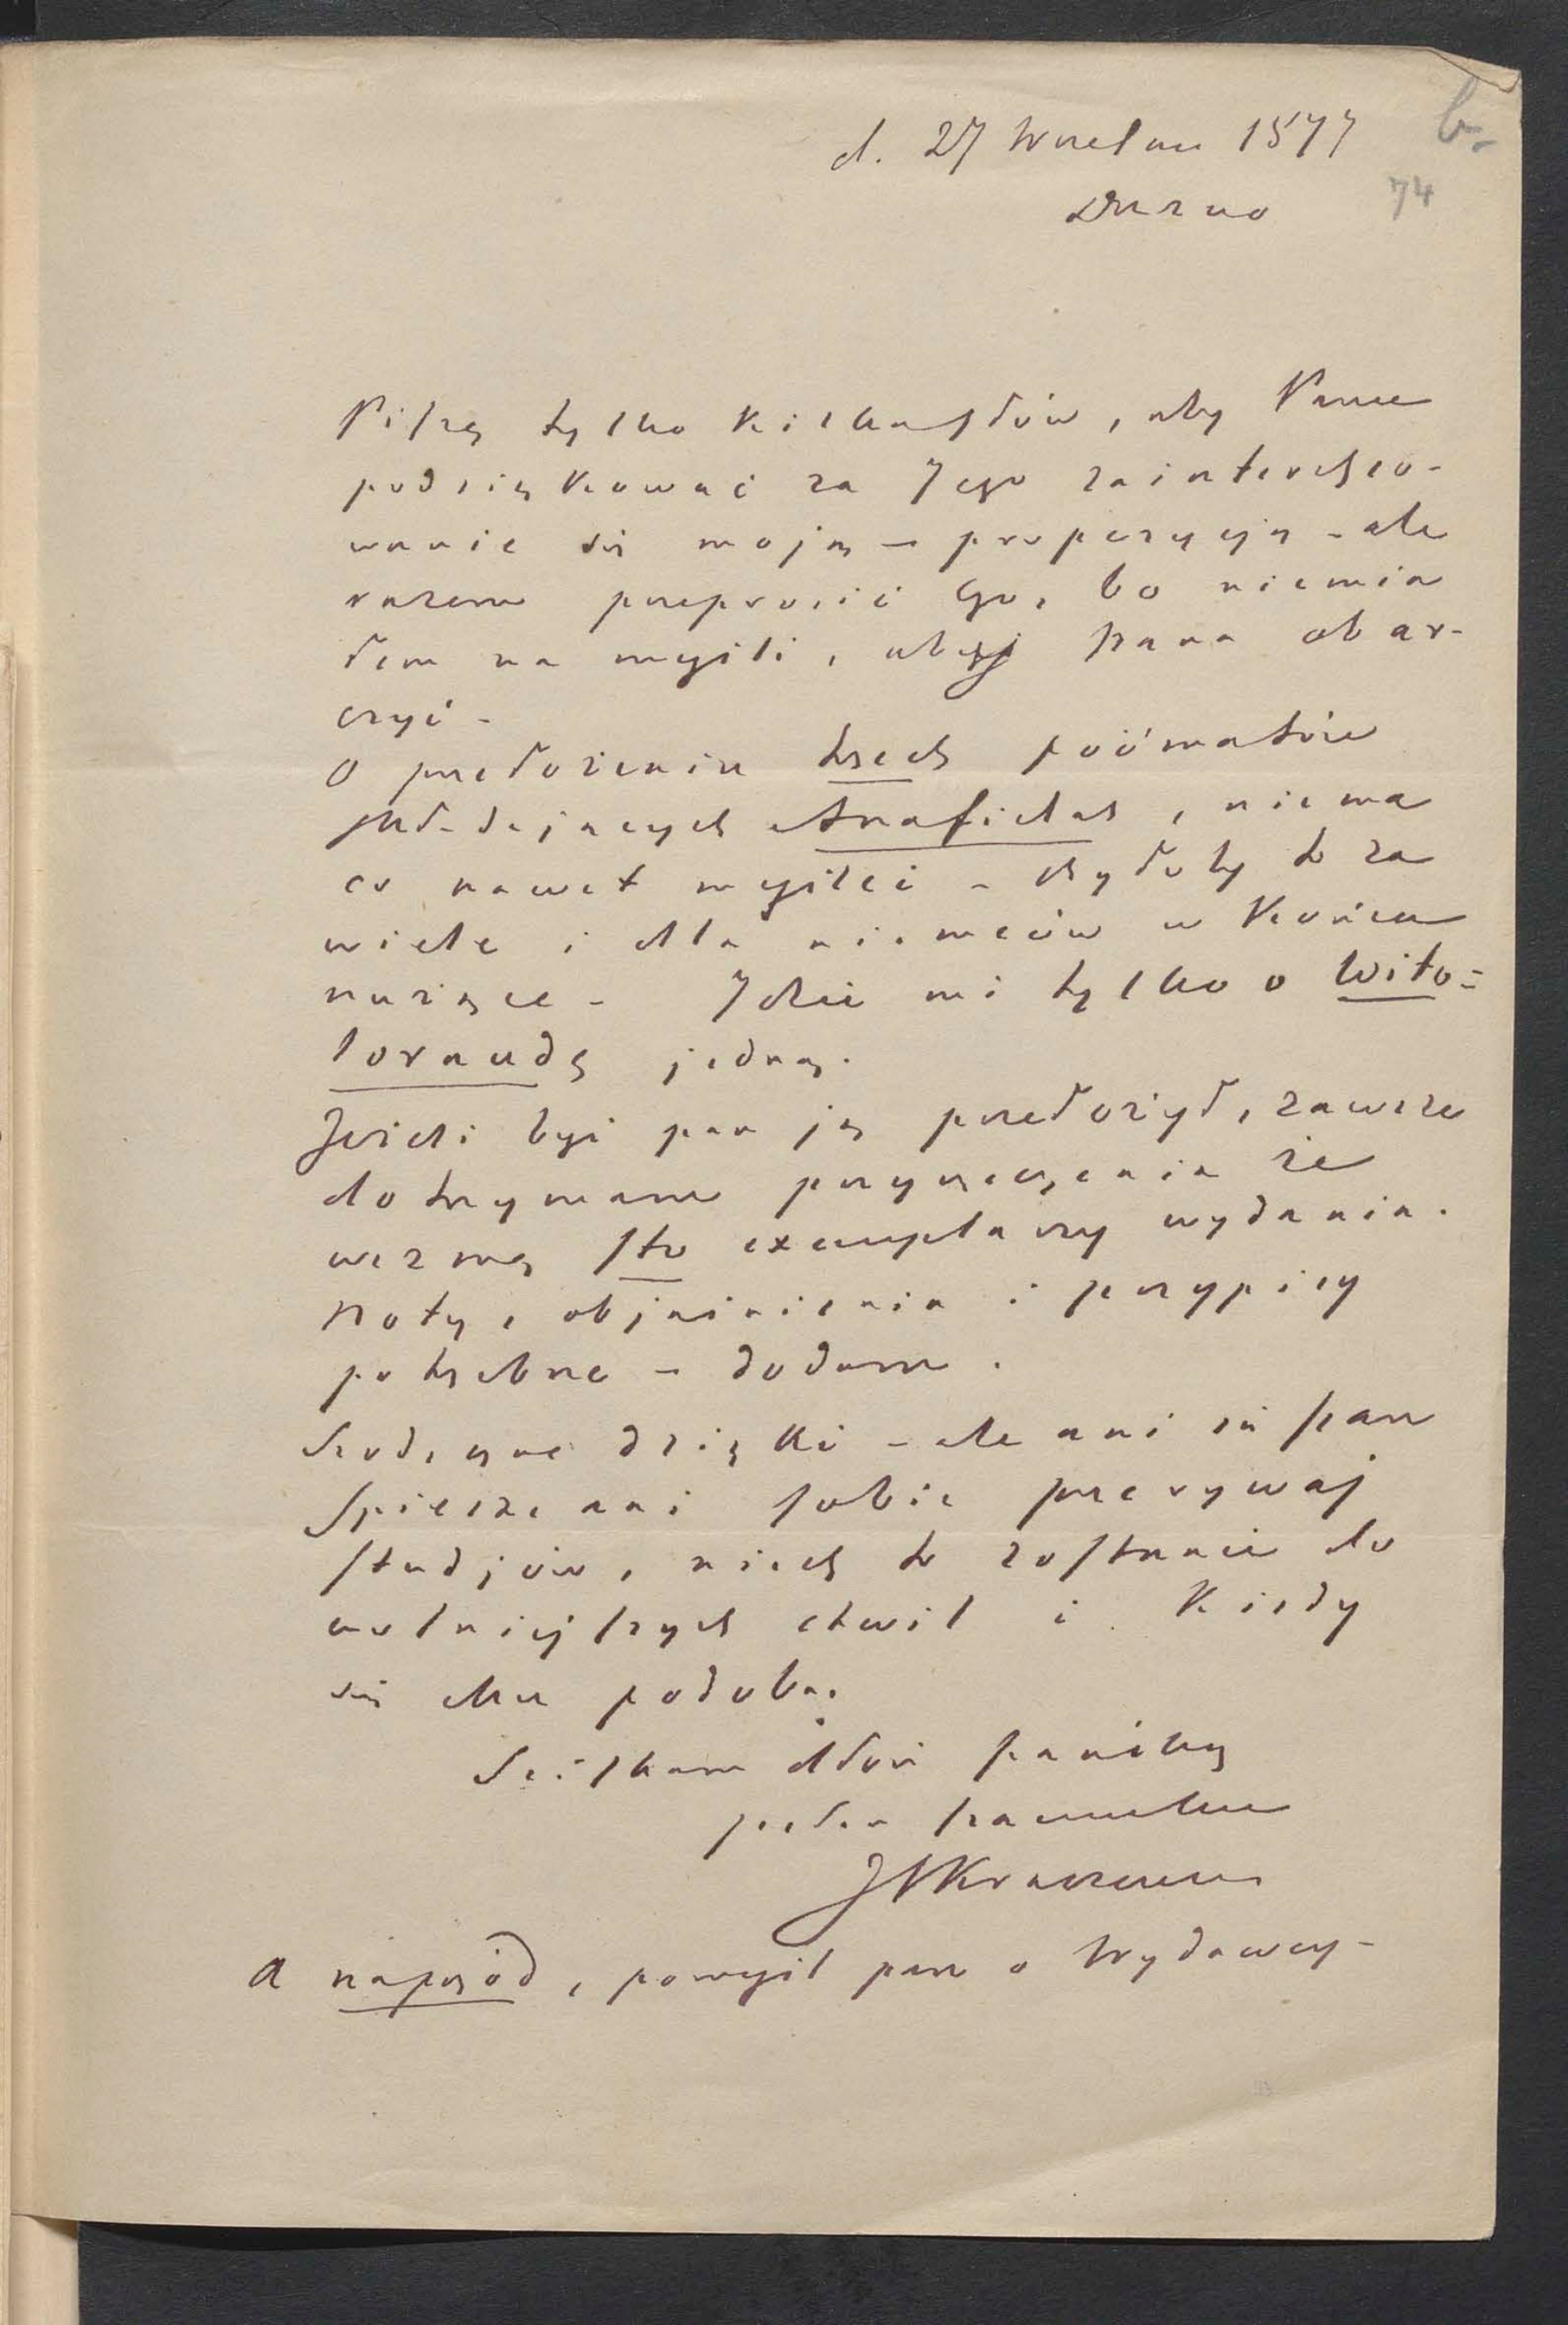 d. 27 Września 1877
b.
Drezno
74
Piszę tylko kilka słów, aby Panu
podziękować za Jego zaintereso-
wanie się moją – propozycją – ale
razem przeprosić Go, bo niemia
łem na myśli, abym Pana obar-
czyć –
O przełożeniu trzech poematów
składających Anafielas, niema
co nawet myśleć – byłoby to za
wiele i dla niemców w końcu
nużące – Idzie mi tylko o Wito-
loraudę jedną.
Jeśli byś pan ją przełożył, zawsze
dotrzymam przyrzeczenia że
wezmę sto exemplarzy wydania.
Noty, objaśnienia i przypisy
potrzebne – dodam.
Serdeczne dzięki – ale ani się pan
spiesz ani sobie przerywaj
studjów, niech to zostanie do
wolniejszych chwil i kiedy
się Mu podoba.
Ściskam dłoń pańską
pełen szacunku
JIKraszewski
A naprzód, pomyśl pan o Wydawcy –